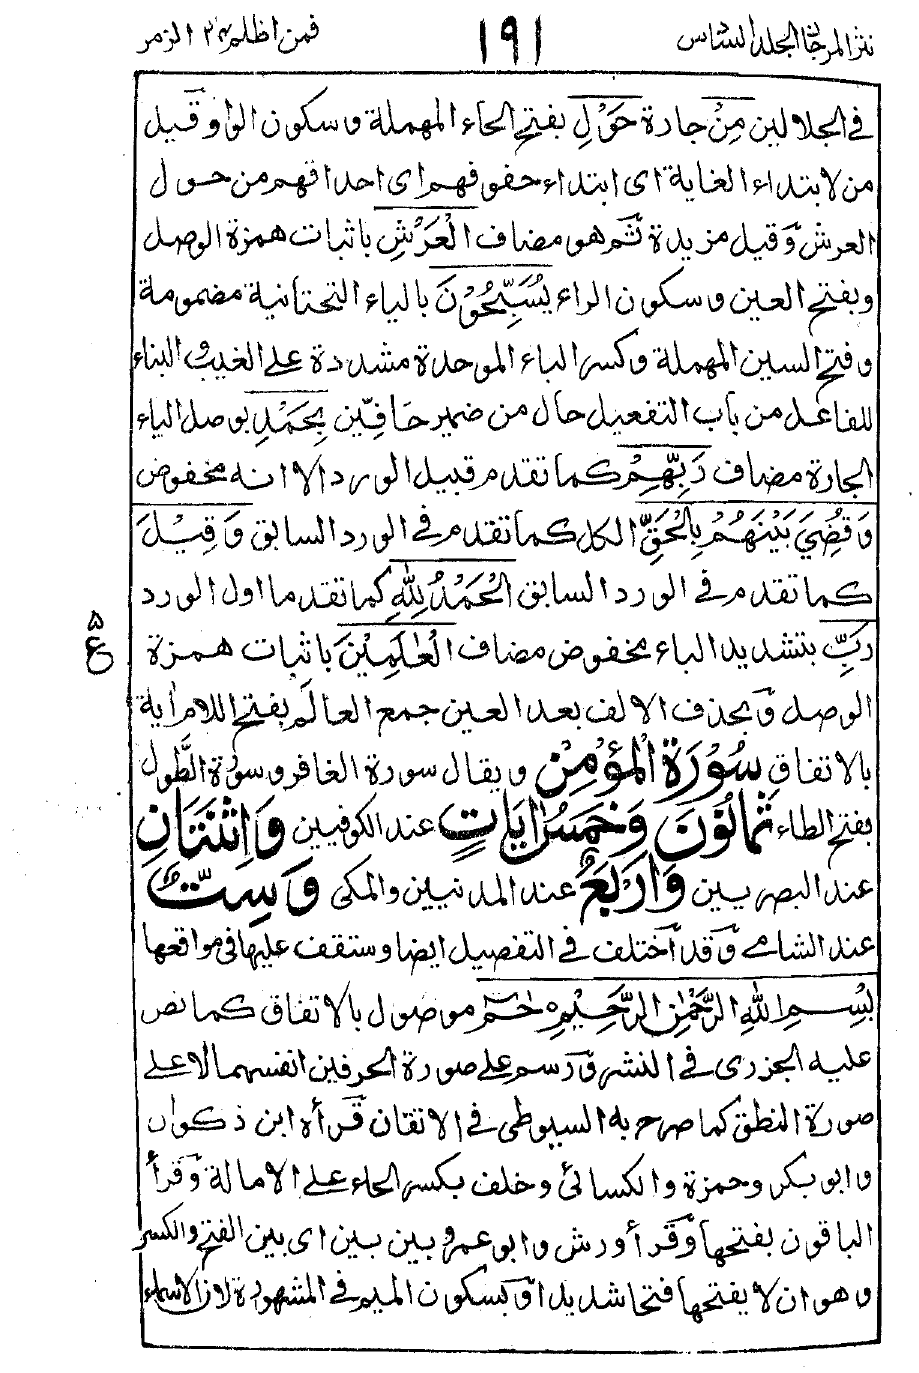 نثر المرجان الجلد السادس
١٩١
فمن اظلم ٢٤ الزمر
فی الجلالین مِنْ جارة حَوْلِ بفتح الحاء المهملة وسكون الواو قیل
من لابتداء الغایة ای ابتداء حفوفهم ای احداقهم من حول
العرش وقیل مزیدة ثم هو مضاف الْعَرْشِ باثبات همزة الوصل
وبفتح العین وسكون الراء یُسَبِّحُوْنَ بالیاء التحتانیة مضمومة
وفتح السین المهملة وكسر الباء الموحدة مشددة علی الغیب والبناء
للفاعل من باب التفعیل حال من ضمیر حَافِّیْن بِحَمْدِ بوصل الباء
الجارة مضاف رَبِّهِمْ كما تقدم قبیل الورد الا انه مخفوض
وَقُضِیَ بَیْنَهُمْ بِالْحَقِّ الكل كما تقدم فی الورد السابق وَقِیْلَ
كما تقدم فی الورد السابق الْحَمْدُ لِلّٰهِ كما تقدم اول الورد
رَبِّ بتشدید الباء مخفوض مضاف الْعٰلَمِیْنَ باثبات همزة
ع ٥
الوصل وبحذف الالف بعد العین جمع العالَم بفتح اللام اٰیة
بالاتفاق سُوْرَةُ الْمُؤْمِنْ ویقال سورة الغافر وسورة الطَّول
بفتح الطاء ثَمَانُوْنَ وَخَمْسُ اٰیَاتٍ عند الكوفیین وَاثْنَتَانِ
عند البصریین وَاَرْبَعٌ عند المدنیین والمكی وَسِتٌّ
عند الشامی وقد اختلف فی التفصیل ایضا وستقف علیها فی مواقعها
بِسْمِ اللّٰهِ الرَّحْمٰنِ الرَّحِیْمِ حٰمٓ موصول بالاتفاق كما نص
علیه الجزری فی النشر ورسم علی صورة الحرفین انفسهما لا علی
صورة النطق كما صرح به السیوطی فی الاتقان قرأه ابن ذكوان
وابو بكر وحمزة والكسائی وخلف بكسر الحاء علی الامالة وقرأ
الباقون بفتحها وقرأ ورش وابو عمرو بین بین ای بین الفتح والكسر
وهو ان لا یفتحها فتحا شدیدا وبسكون المیم فی المشهورة لان الاسماء